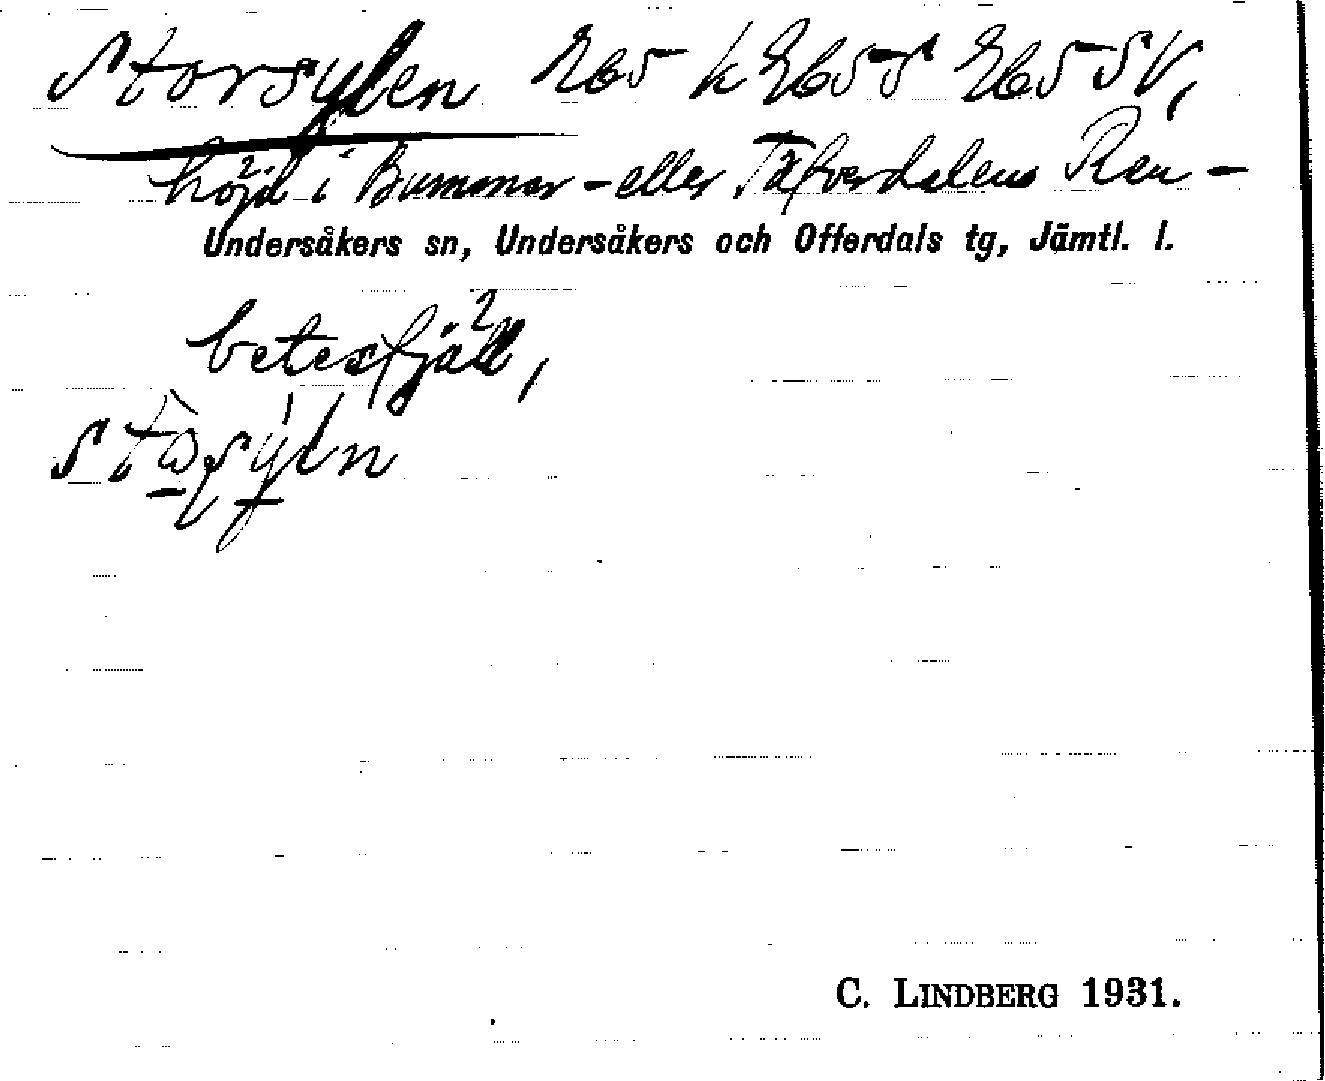 Storsylen 265 k 265 S 265 SV,
höjd i Bummer - eller Täfverdalens Ren-
Undersåkers sn, Undersåkers och Offerdals tg, Jämtl. l.
betesfjäll,
C. LINDBERG 1931.